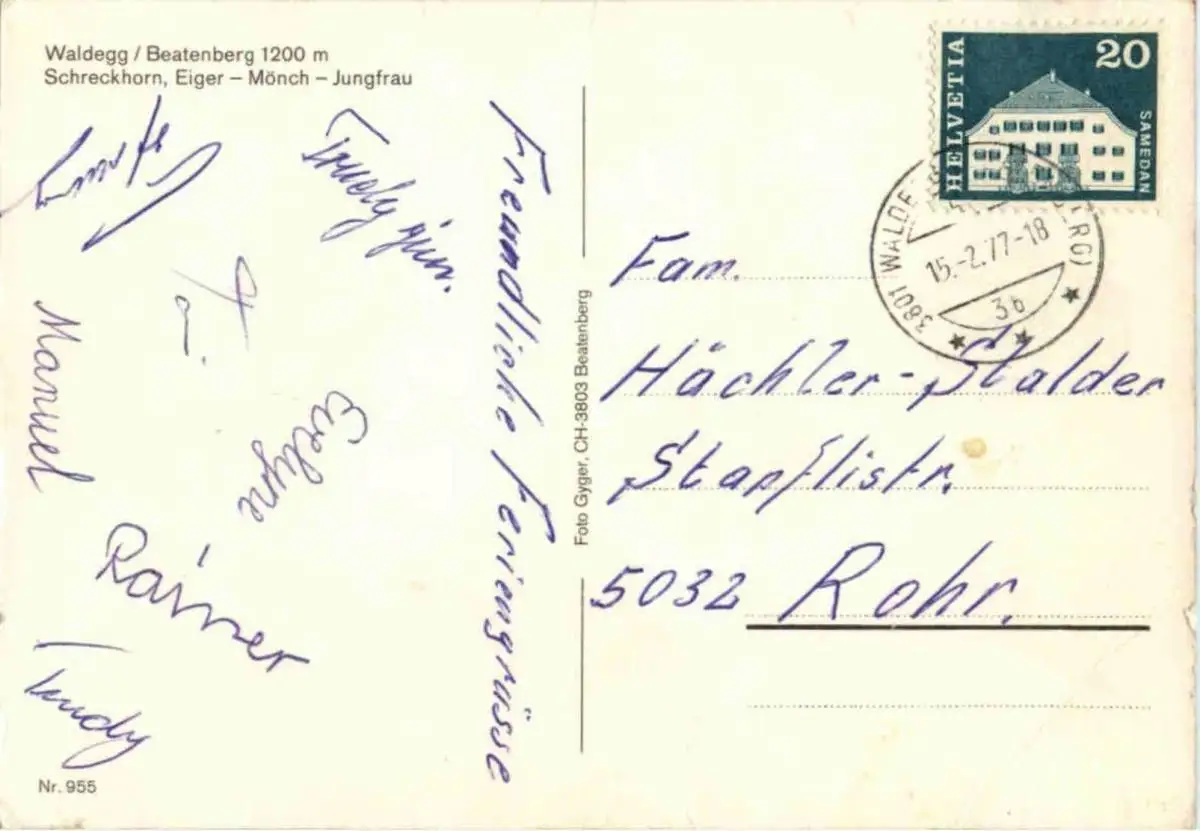 Waldegg / Beatenberg 1200 m
Schreckhorn, Eiger – Mönch – Jungfrau
Trudy jun.
Manuel
Evelyne
Rainer
Trudy
Nr. 955
Freundliche Feriengrüsse
Foto Gyger, CH-3803 Beatenberg
HELVETIA
20
SAMEDAN
3801 (WALDE
ERG)
15.-2.77-18
3b
Fam.
Hächler-Stalder
Stapflistr.
5032 Rohr.